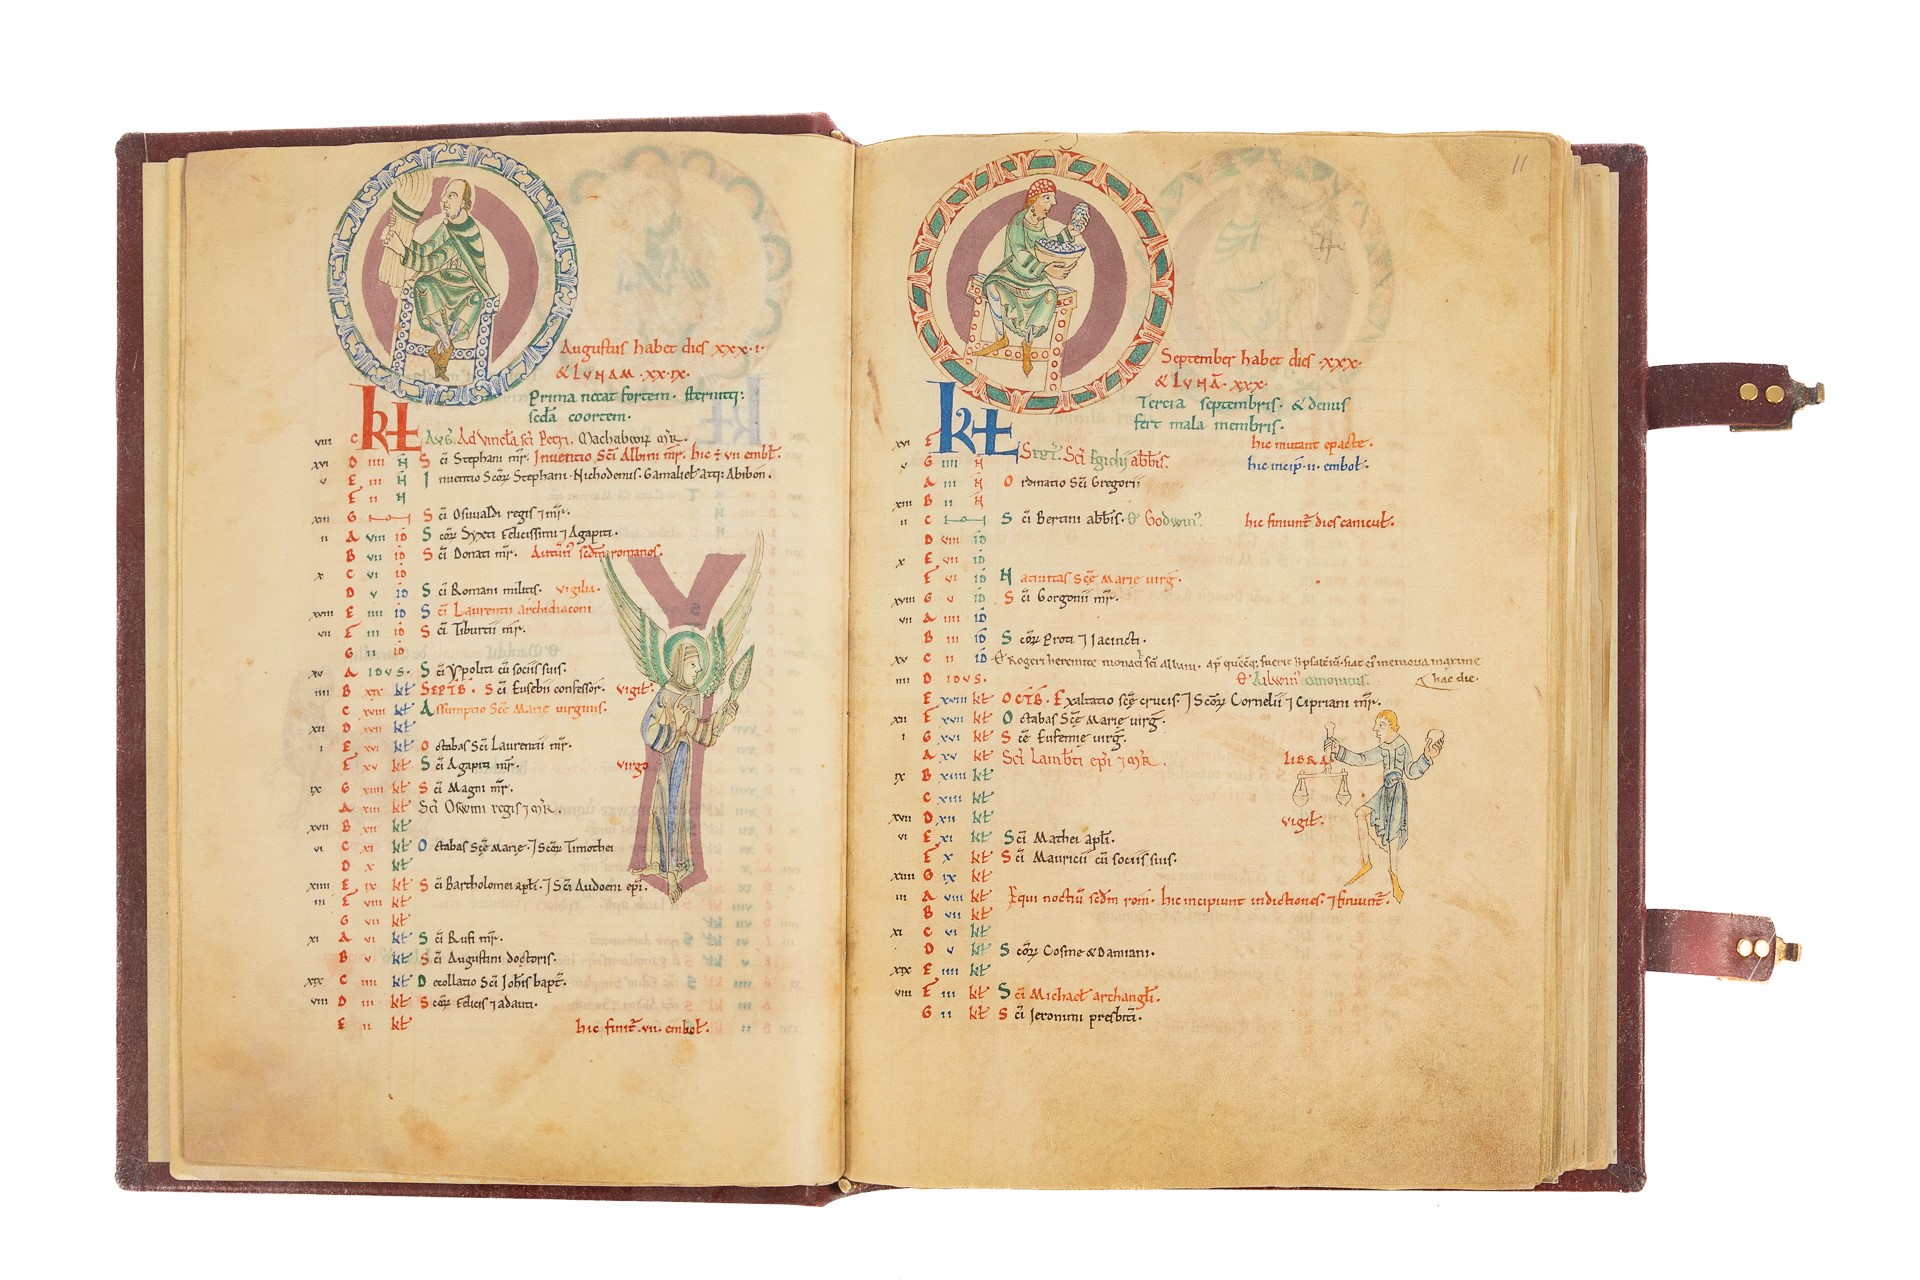 Augustus habet dies xxx·i·
& LUNAM ·xx·ix·
Prima necat fortem· sternitq;
scđa coortem·
viii C KL AUG. Ad Vincla sci Petri. Machabeorꝝ mr̄.
xvi D iiii N S ci Stephani mr̄. Inventio Sci Albini mr̄. hic ÷ vii embł.
v E iii N Inventio Scorꝝ Stephani· Nichodemi· Gamaliel atq; Abibon.
F ii N
xiii G S ci Osuualdi regis ⁊ mr̄.
ii A viii iđ S corꝝ Syxti Felicissimi ⁊ Agapiti.
B vii iđ S ci Donati mr̄. Autūn' sedm romanos.
x C vi iđ
D v iđ S ci Romani militis. vigilia.
xviii E iiii iđ S ci Laurentii archidiaconi
vii F iii iđ S ci Tiburtii mr̄.
G ii iđ
xv A IDUS. S ci Ypoliti cū sociis suis.
iiii B xix kł SEPTB. S ci Eusebii confessor. vigił.
C xviii kł Assumptio Sce Marie virginis.
xii D xvii kł
i E xvi kł Octabas Sci Laurentii mr̄.
F xv kł S ci Agapiti mr̄. virgo
ix G xiiii kł S ci Magni mr̄.
A xiii kł Sci Oswini regis ⁊ mr̄.
xvii B xii kł
vi C xi kł Octabas Sce Marie. ⁊ Scorꝝ Timothei
D x kł
xiiii E ix kł S ci Bartholomei apłi. ⁊ Sci Audoeni epi.
iii F viii kł
G vii kł
xi A vi kł S ci Rufi mr̄.
B v kł S ci Augustini doctoris.
xix C iiii kł Decollatio Sci Johis bapt̄.
viii D iii kł S corꝝ Felicis ⁊ adauti.
E ii kł hic finit̄ .vii. emboł.
11
September habet dies ·xxx·
& LUNĀ ·xxx·
Tercia septembris· & denus
fert mala membris·
hic mutant epacte.
xvi F KL SEPT. Sci Egidij abbis.
v G iiii N hic incip̄ ·ii· emboł.
A iii N Ordinatio Sci Gregorii
xiii B ii N
ii C S ci Bertini abbis. & Godwin'. hic finiunt̄ dies canicuł.
D viii iđ
x E vii iđ
F vi iđ Nativitas Sce Marie virḡ.
xviii G v iđ S ci Gorgonii mr̄.
vii A iiii iđ
B iii iđ S corꝝ Proti ⁊ Iacincti.
xv C ii iđ & Rogeri heremite monaci sci albani. ap̄ quēcq; fuerit h psaltiū. fiat ei' memoria maxime
hac die.
iiii D IDUS. & Ailwin' canonicus.
E xviii kł OCTB. Exaltatio sce crucis. ⁊ Scorꝝ Cornelii ⁊ Cipriani mr̄.
xii F xvii kł Octabas Sce Marie virḡ.
i G xvi kł S ce Eufemie virḡ.
A xv kł Sci Lambti epi ⁊ mr̄.
LIBRA
ix B xiiii kł
C xiii kł
xvii D xii kł vigił.
vi E xi kł S ci Mathei apłi.
F x kł S ci Mauricii cū sociis suis.
xiiii G ix kł
iii A viii kł Equi noctiū sedm rom̄. hic incipiunt indictiones. ⁊ finiunt̄.
B vii kł
xi C vi kł
D v kł S corꝝ Cosme & Damiani.
xix E iiii kł
viii F iii kł S ci Michael archangli.
G ii kł S ci Jeronimi presbiti.